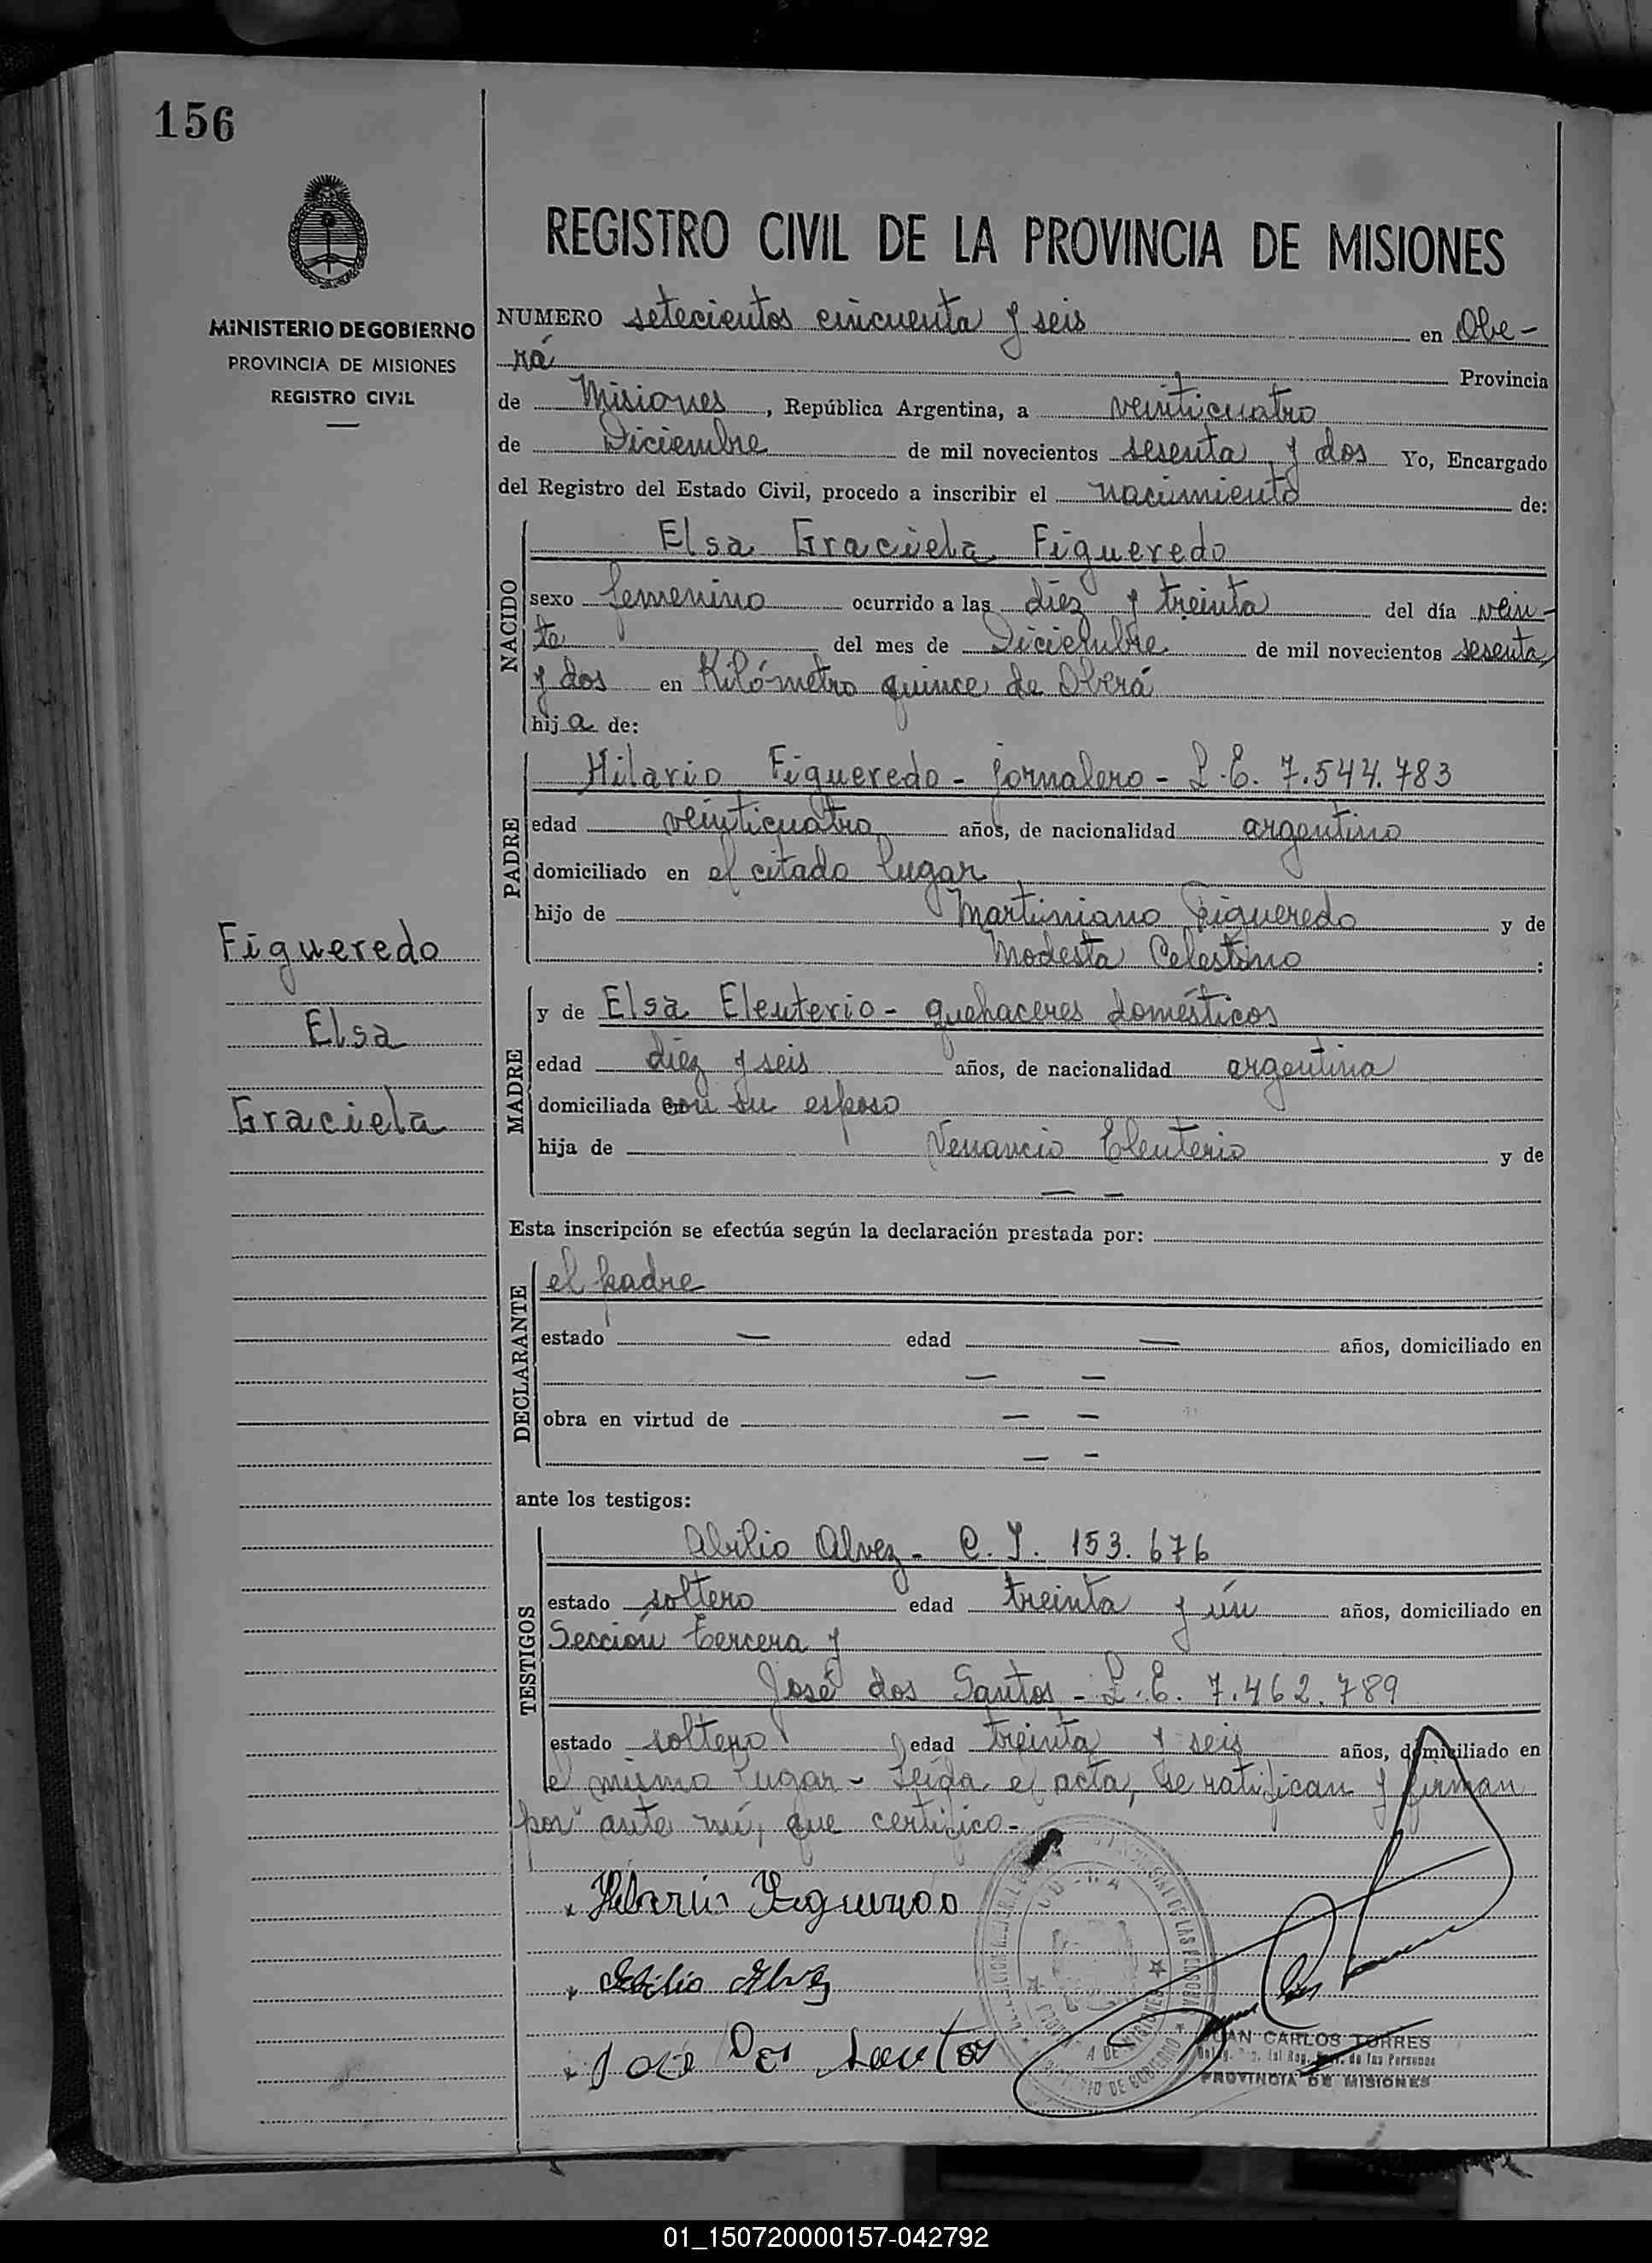 156
REGISTRO CIVIL DE LA PROVINCIA DE MISIONES
MINISTERIO DE GOBIERNO
PROVINCIA DE MISIONES
REGISTRO CIVIL
NUMERO setecientos cincuenta y seis en Obe-
rá Provincia
de Misiones, República Argentina, a veinticuatro
de Diciembre de mil novecientos sesenta y dos Yo, Encargado
del Registro del Estado Civil, procedo a inscribir el nacimiento de:
NACIDO
Elsa Graciela Figueredo
sexo femenino ocurrido a las diez y treinta del día vein-
te del mes de Diciembre de mil novecientos sesenta
y dos en Kilómetro quince de Oberá
hija de:
PADRE
Hilario Figueredo - jornalero - L.E. 7.544.783
edad veinticuatro años, de nacionalidad argentino
domiciliado en el citado lugar
hijo de Martiniano Figueredo y de
Modesta Celestino :
Figueredo
Elsa
Graciela
MADRE
y de Elsa Eleuterio - quehaceres domésticos
edad diez y seis años, de nacionalidad argentina
domiciliada con su esposo
hija de Venancio Eleuterio y de
— —
Esta inscripción se efectúa según la declaración prestada por:
DECLARANTE
el padre
estado — edad — años, domiciliado en
— —
obra en virtud de — —
— —
ante los testigos:
TESTIGOS
Abilio Alvez - C.I. 153.676
estado soltero edad treinta y ún años, domiciliado en
Sección tercera y
José dos Santos - L.E. 7.462.789
estado soltero edad treinta y seis años, domiciliado en
el mismo lugar - Leída el acta, se ratifican y firman
por ante mí, que certifico -
Hilario Figueredo
Abilio Alvez
José Dos Santos
JUAN CARLOS TORRES
de las Personas
PROVINCIA DE MISIONES
01_150720000157-042792